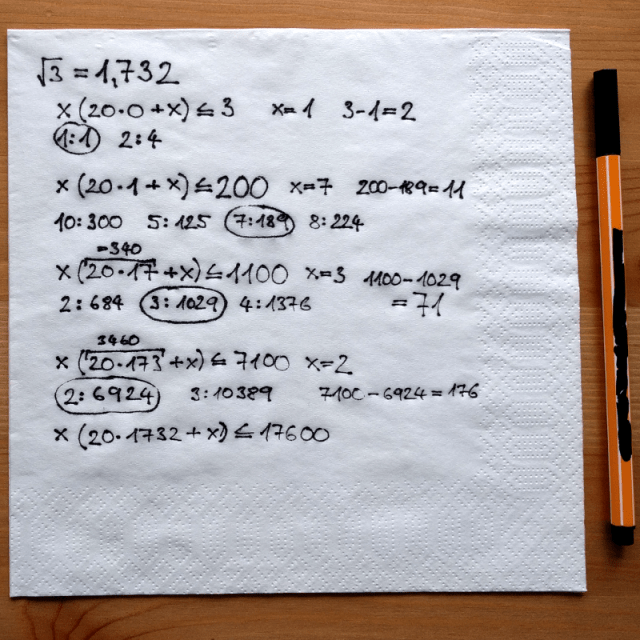 √3 = 1,732
x (20·0 + x) ≤ 3 x=1 3-1=2
1:1 2:4
x (20·1 + x) ≤ 200 x=7 200-189=11
10:300 5:125 7:189 8:224
=340
x (20·17 + x) ≤ 1100 x=3 1100-1029
2:684 3:1029 4:1376 =71
3460
x (20·173 + x) ≤ 7100 x=2
2:6924 3:10389 7100-6924=176
x (20·1732 + x) ≤ 17600